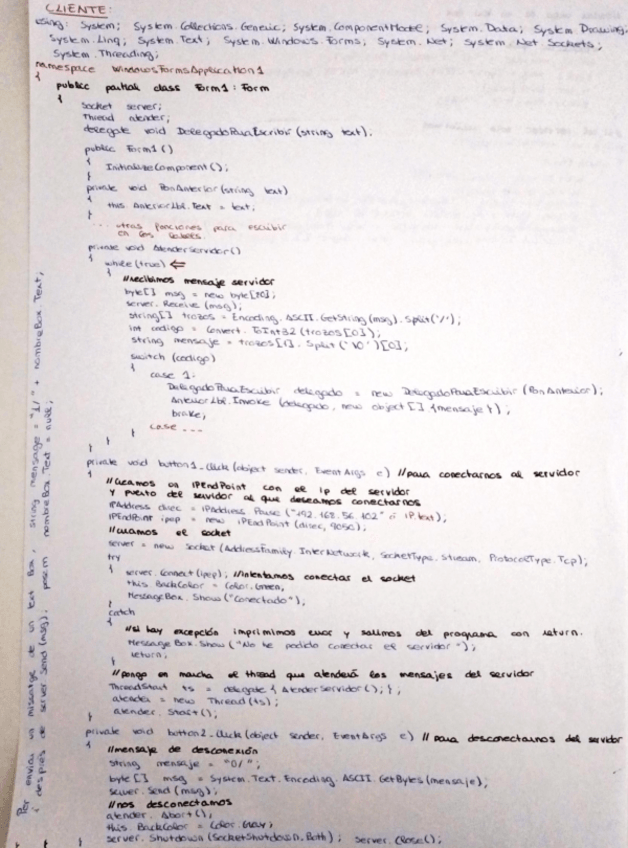 CLIENTE:
using: System; System.Collections.Generic; System.ComponentModel; System.Data; System.Drawing,
System.Linq; System.Text; System.Windows.Forms; System.Net; System.Net.Sockets;
System.Threading;
namespace WindowsFormsApplication1
{
public partial class Form1 : Form
{
Socket server;
Thread atender;
delegate void DelegadoParaEscribir (string text);
public Form1 ()
{
InitializeComponent ();
}
private void PonAnterior (string text)
{
this.AnteriorLbl.Text = text;
}
... otras funciones para escribir
en los labels.
private void AtenderServidor ()
{
while (true) ⇐
{
//recibimos mensaje servidor
byte[] msg = new byte[80];
server.Receive (msg);
string[] trozos = Encoding.ASCII.GetString (msg).Split('/');
int codigo = Convert.ToInt32 (trozos[0]);
string mensaje = trozos[1].Split ('\0')[0];
switch (codigo)
{
case 1:
DelegadoParaEscribir delegado = new DelegadoParaEscribir (PonAnterior);
AnteriorLbl.Invoke (delegado, new object [] {mensaje});
brake;
case ...
}
}
}
private void button1_Click (object sender, EventArgs e) //para conectarnos al servidor
{
//creamos un IPEndPoint con el ip del servidor
y puerto del servidor al que deseamos conectarnos
IPAddress direc = IPAddress.Parse ("192.168.56.102" ó IP.text);
IPEndPoint ipep = new IPEndPoint (direc, 9050);
//creamos el socket
server = new Socket (AddressFamily.InterNetwork, SocketType.Stream, ProtocolType.Tcp);
try
{
server.Connect (ipep); //intentamos conectar el socket
this.BackColor = Color.Green;
MessageBox.Show ("Conectado");
}
catch
{
//si hay excepción imprimimos error y salimos del programa con return.
Message Box.Show ("No he podido conectar el servidor");
return;
}
//pongo en marcha el thread que atenderá los mensajes del servidor
ThreadStart ts = delegate { AtenderServidor (); };
atender = new Thread (ts);
atender.Start ();
}
private void button2_Click (object sender, EventArgs e) // para desconectarnos del servidor
{
//mensaje de desconexión
string mensaje = "0/";
byte [] msg = System.Text.Encoding.ASCII.GetBytes (mensaje);
server.Send (msg);
//nos desconectamos
atender.Abort ();
this.BackColor = Color.Gray;
server.Shutdown (SocketShutdown.Both); server.Close ();
}
Per enviar un missatge de un text Box, string mensage = "1/" + nombreBox.Text;
i després de server Send (msg); posem nombreBox.Text = null;